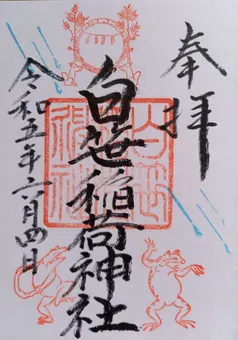 奉拝
白笹稲荷神社
令和五年六月四日